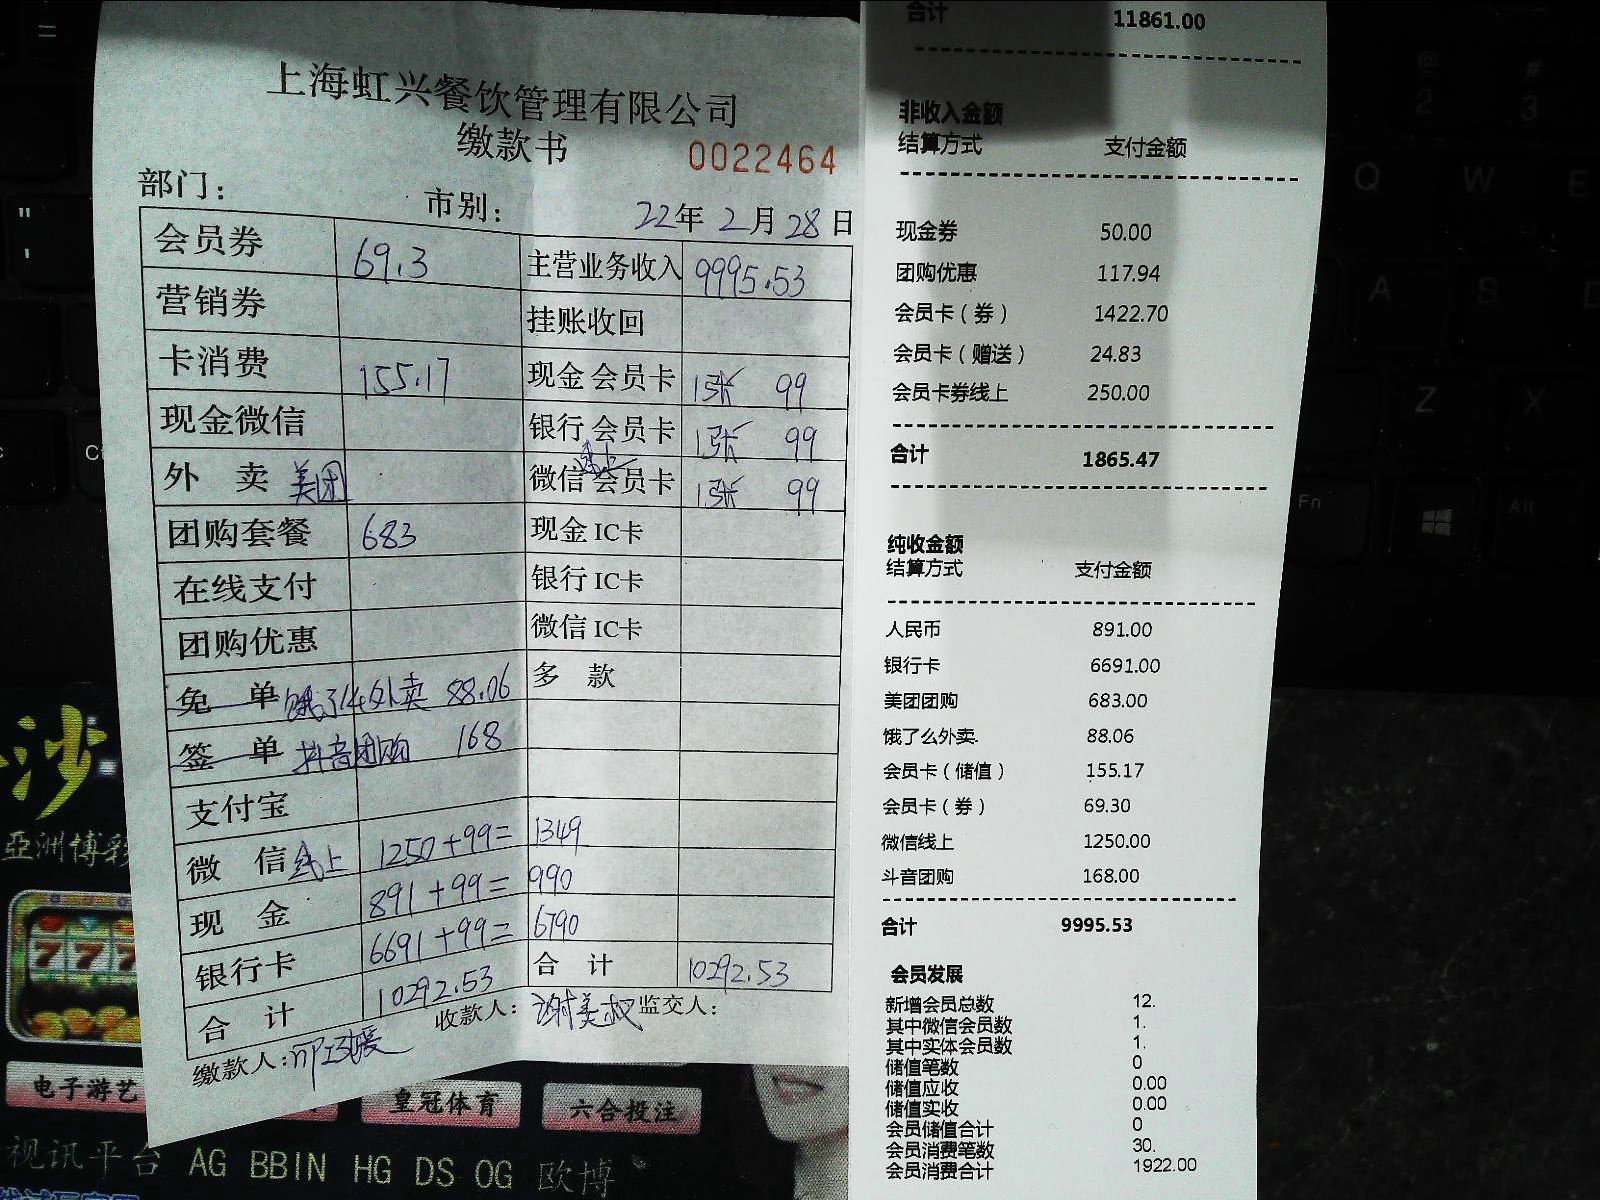 上海虹兴餐饮管理有限公司
缴款书
0022464
部门：
市别：
22年 2月 28日
会员券 69.3 主营业务收入 9995.53
营销券 挂账收回
卡消费 155.17 现金会员卡 1张 99
现金微信 银行会员卡 1张 99
外 卖 美团 微信线上会员卡 1张 99
团购套餐 683 现金IC卡
在线支付 银行IC卡
团购优惠 微信IC卡
免 单 饿了么外卖 88.06 多 款
签 单 抖音团购 168
支付宝
微 信 线上 1250+99= 1349
现 金 891+99= 990
银行卡 6691+99= 6790
合 计 10292.53 合 计 10292.53
缴款人： 收款人： 监交人：
合计 11861.00
非收入金额
结算方式 支付金额
现金券 50.00
团购优惠 117.94
会员卡（券） 1422.70
会员卡（赠送） 24.83
会员卡券线上 250.00
合计 1865.47
纯收金额
结算方式 支付金额
人民币 891.00
银行卡 6691.00
美团团购 683.00
饿了么外卖. 88.06
会员卡（储值） 155.17
会员卡（券） 69.30
微信线上 1250.00
斗音团购 168.00
合计 9995.53
会员发展
新增会员总数 12.
其中微信会员数 1.
其中实体会员数 1.
储值笔数 0
储值应收 0.00
储值实收 0.00
会员储值合计 0
会员消费笔数 30.
会员消费合计 1922.00
沙
亞洲博彩
777
电子游艺
皇冠体育
六合投注
视讯平台 AG BBIN HG DS OG 欧博
@
2
#
3
Q
W
E
A
S
D
Z
X
Fn
Alt